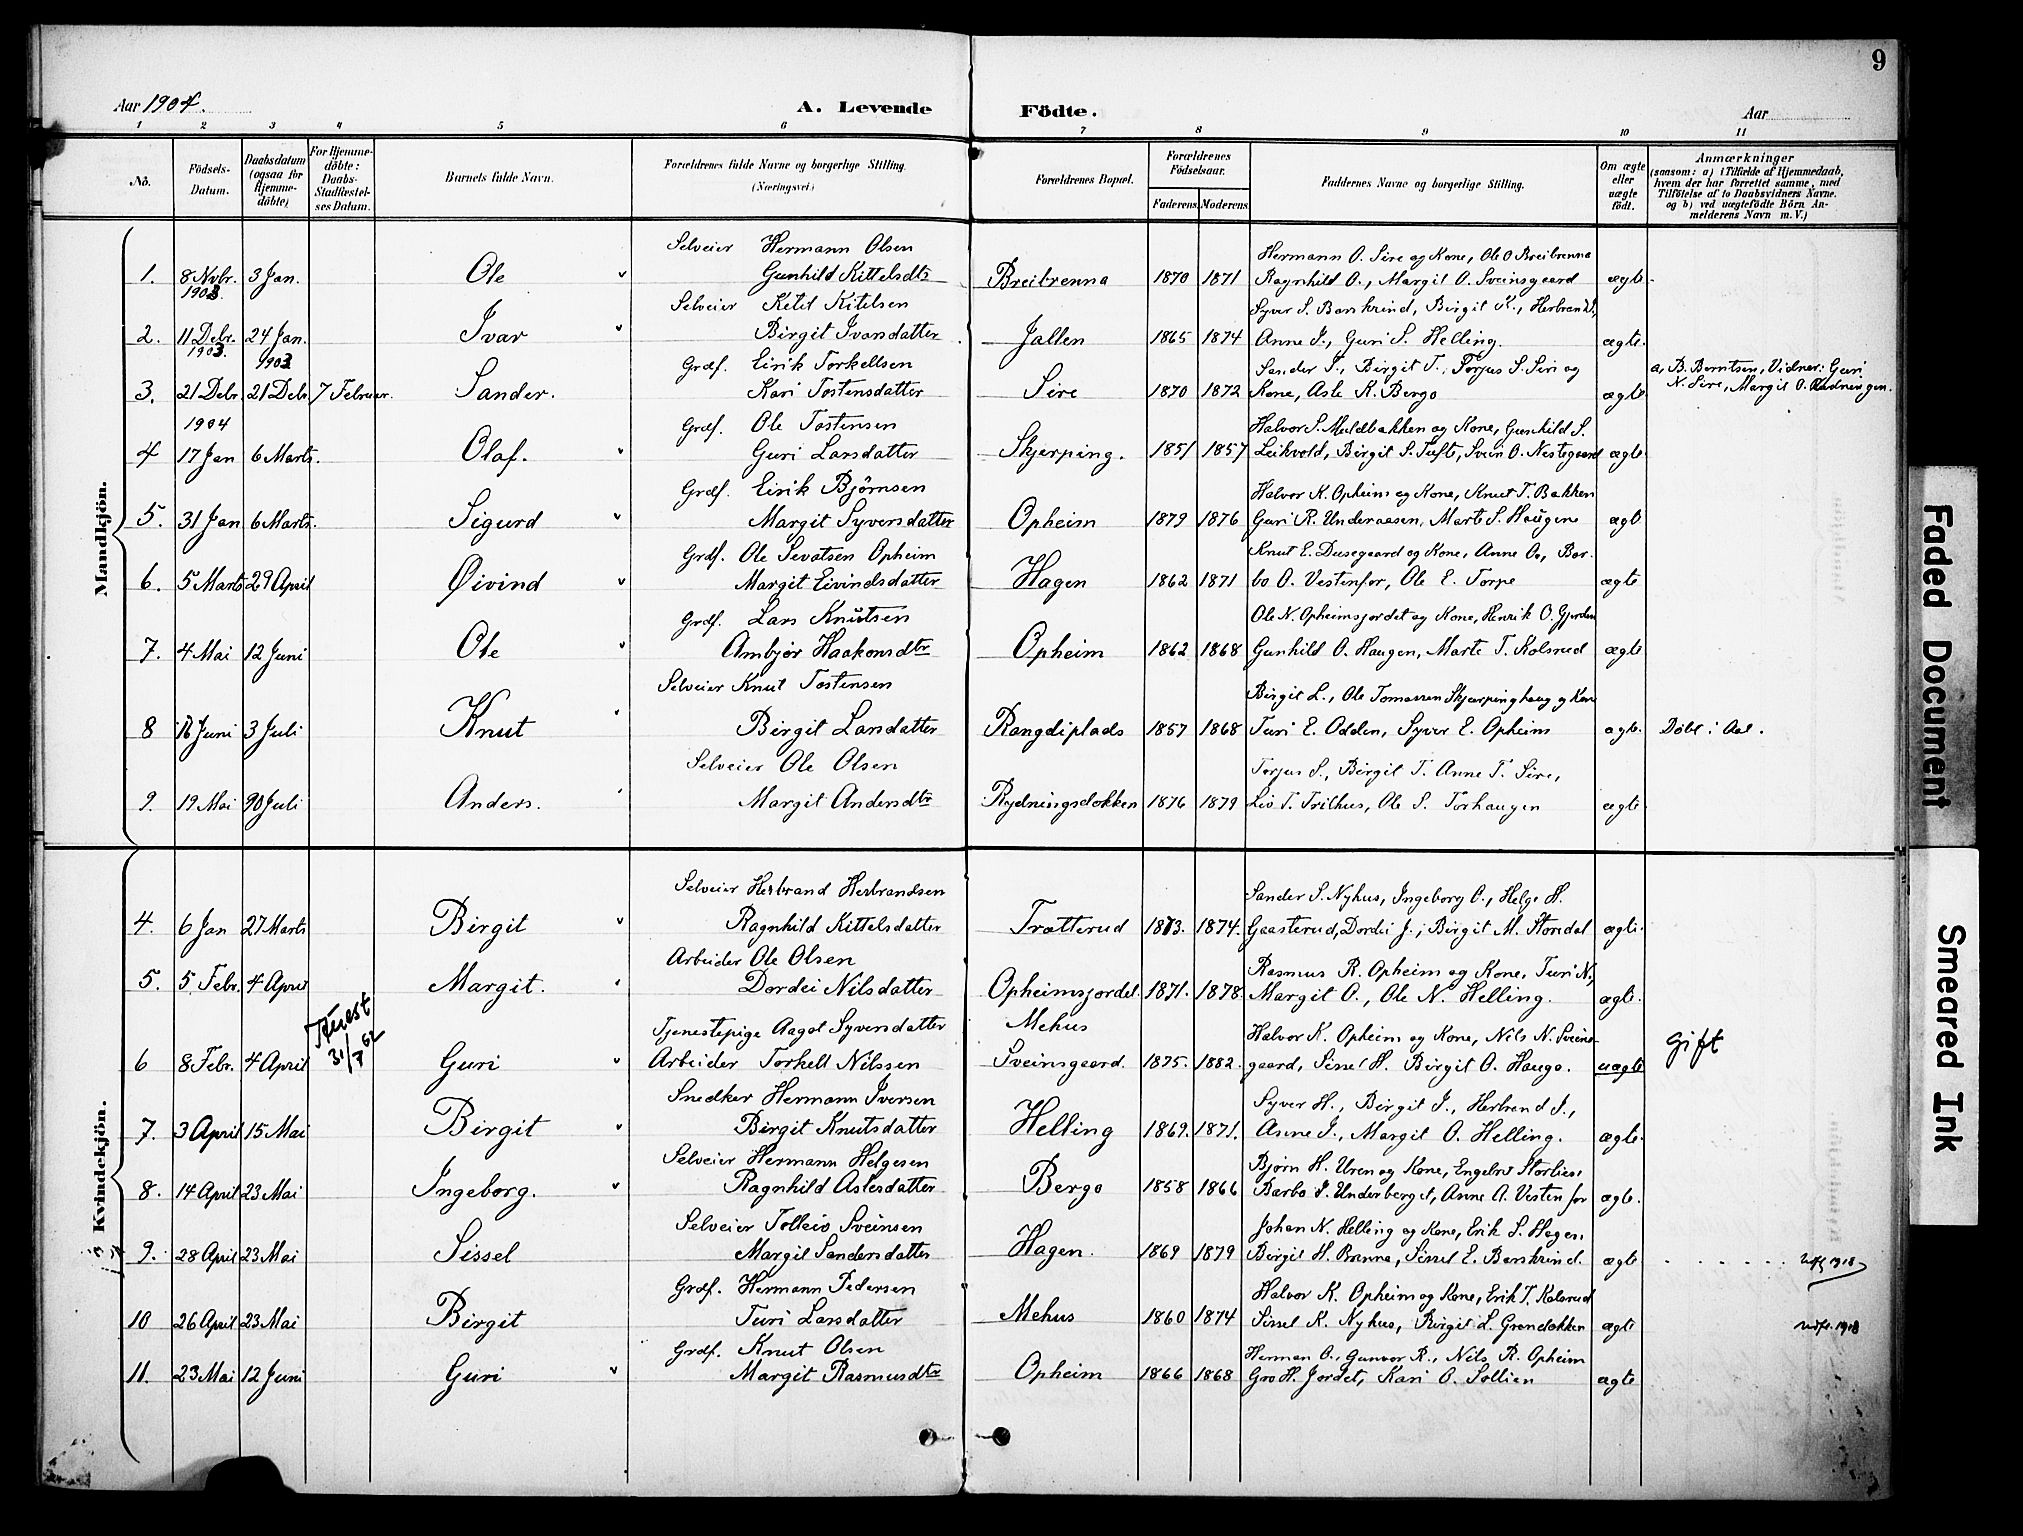 9
Aar 1904.
A. Levende Födte.
Aar
1 2 3 4 5 6 7 8 9 10 11
No.
Födsels-Datum.
Daabsdatum (ogsaa for Hjemme-döbte)
For Hjemme-döbte: Daabs-Stadfæstel-ses Datum.
Barnets fulde Navn.
Forældrenes fulde Navne og borgerlige Stilling. (Næringsvei.)
Forældrenes Bopæl.
Forældrenes Födselsaar.
Faderens. Moderens.
Faddernes Navne og borgerlige Stilling.
Om ægte eller uægte födt.
Anmærkninger
(saasom: a) i Tilfælde af Hjemmedaab, hvem der har forrettet samme, med Tilföielse af to Daabsvidners Navne. og b) ved uægtefödte Börn An-melderens Navn m. V.)
Mandkjön.
Selveier Hermann Olsen Hermann O. Sire og Kone, Ole O Breibrenna
1. 8 Nvbr. 3 Jan. Ole Gunhild Kittelsdtr Breibrenna 1870 1871 Ragnhild O., Margit O. Sveinsgaard ægte.
1903.
Selveier Ketil Kitilsen Syver S. Barskrind, Birgit K., Herbrand I.,
2. 11 Debr. 24 Jan. Ivar Birgit Ivarsdatter Jallen 1865 1874 Anne I., Guri S. Helling. ægte.
1903. 1903
Grdf. Eirik Torkellsen Sander T., Birgit T., Torjus S. Siri og a, B. Berntsen, Vidner: Guri
3. 21 Debr. 21 Debr. 7 Februar. Sander. Kari Tostensdatter Sire 1870 1872 Kone, Asle K. Bergo ægte N. Sire, Margit O.
1904 Grdf. Ole Tostensen Halvor S. Muldbakken og Kone, Gunhild S.
4 17 Jan 6 Marts. Olaf. Guri Larsdatter Skjerping. 1851 1857 Leikvold, Birgit S. Tufte, Svein O. Nestegaard ægte
Grdf. Eirik Bjørnsen Halvor K. Opheim og Kone, Knut T. Bakken
5. 31 Jan 6 Marts. Sigurd Margit Syversdatter Opheim 1879 1876 Guri R. Underaasen, Marte S. Haugene ægte
Grdf. Ole Sevatsen Opheim Knut E. Dusegaard og Kone, Anne Oo, Bar-
6. 5 Marts 29 April Øivind Margit Eivindsdatter Hagen 1862 1871 bo O. Vestenfor, Ole E. Torpe ægte
Grdf. Lars Knutsen Ole N. Opheimsjordet og Kone, Henrik O. Gjorden
7. 4 Mai 12 Juni Ole Ambjør Haakonsdtr Opheim 1862 1868 Gunhild O. Haugen, Marte T. Kolsrud ægte
Selveier Knut Tostensen Birgit L., Ole Tomassen Skjerpinghaug og Kone
8 16 Juni 3 Juli Knut Birgit Larsdatter Rangdiplads 1857 1868 Turi E. Odden, Syver E. Opheim ægte. Døbt i Aal.
Selveier Ole Olsen Torjus S., Birgit T. Anne T. Sire,
9. 19 Mai Juli Anders. Margit Andersdtr Rydningsdokken 1876 1879 Liv T. Trilhus, Ole S. Torhaugen ægte
Kvindekjön.
Selveier Herbrand Herbrandsen Sander S. Nyhus, Ingeborg O., Helge H.
4. 6 Jan 27 Marts Birgit Ragnhild Kittelsdatter Tratterud 1873. 1874. Gaasterud, Dordei J., Birgit M. Stondal ægte.
Arbeider Ole Olsen Rasmus R. Opheim og Kone, Turi N.,
5. 5 Febr. 4 April Margit. Dordei Nilsdatter Opheimsjordet. 1871. 1878. Margit O., Ole N. Helling. ægte.
31/7 62
Tjenestepige Aagot Syversdatter Mehus Halvor K. Opheim og Kone, Nils N. Sveins- gift
6 8 Febr. 4 April Guri Arbeider Torkell Nilssen Sveinsgaard. 1875. 1882. gaard, Sissel H. Birgit O. Haugo. uægte
Snedker Hermann Iversen Syver H., Birgit I., Herbrand I.,
7. 3 April 15 Mai Birgit Birgit Knutsdatter Helling 1869. 1871. Anne I., Margit O. Helling. ægte.
Selveier Hermann Helgesen Bjørn H. Uren og Kone, Engebret Storlien
8. 14 April 23 Mai Ingeborg. Ragnhild Aslesdatter Bergo 1858 1866 Barbo I. Underberget, Anne A. Vestenfor ægte.
Selveier Tolleiv Sveinsen Johan N. Helling og Kone, Erik S. Hagen
9. 28 April 23 Mai Sissel Margit Sandersdatter Hagen. 1869 1879 Birgit H. Brenna, Sissel E. Barskrind. ægte . . . . . . Udfl 1918
Grdf. Hermann Pedersen Halvor K. Opheim og Kone, Erik T. Kolsrud
10 26 April 23 Mai Birgit Turi Larsdatter Mehus 1860 1874 Sissel K. Nyhus, Birgit L. Grøndokken ægte Udfl. 1918
Grdf. Knut Olsen Herman O., Gunvor R., Nils R. Opheim
11. 23 Mai 12 Juni Guri Margit Rasmusdtr Opheim 1866 1868 Gro H. Jordet, Kari O. Sollien ægte
Faded Document
Smeared Ink